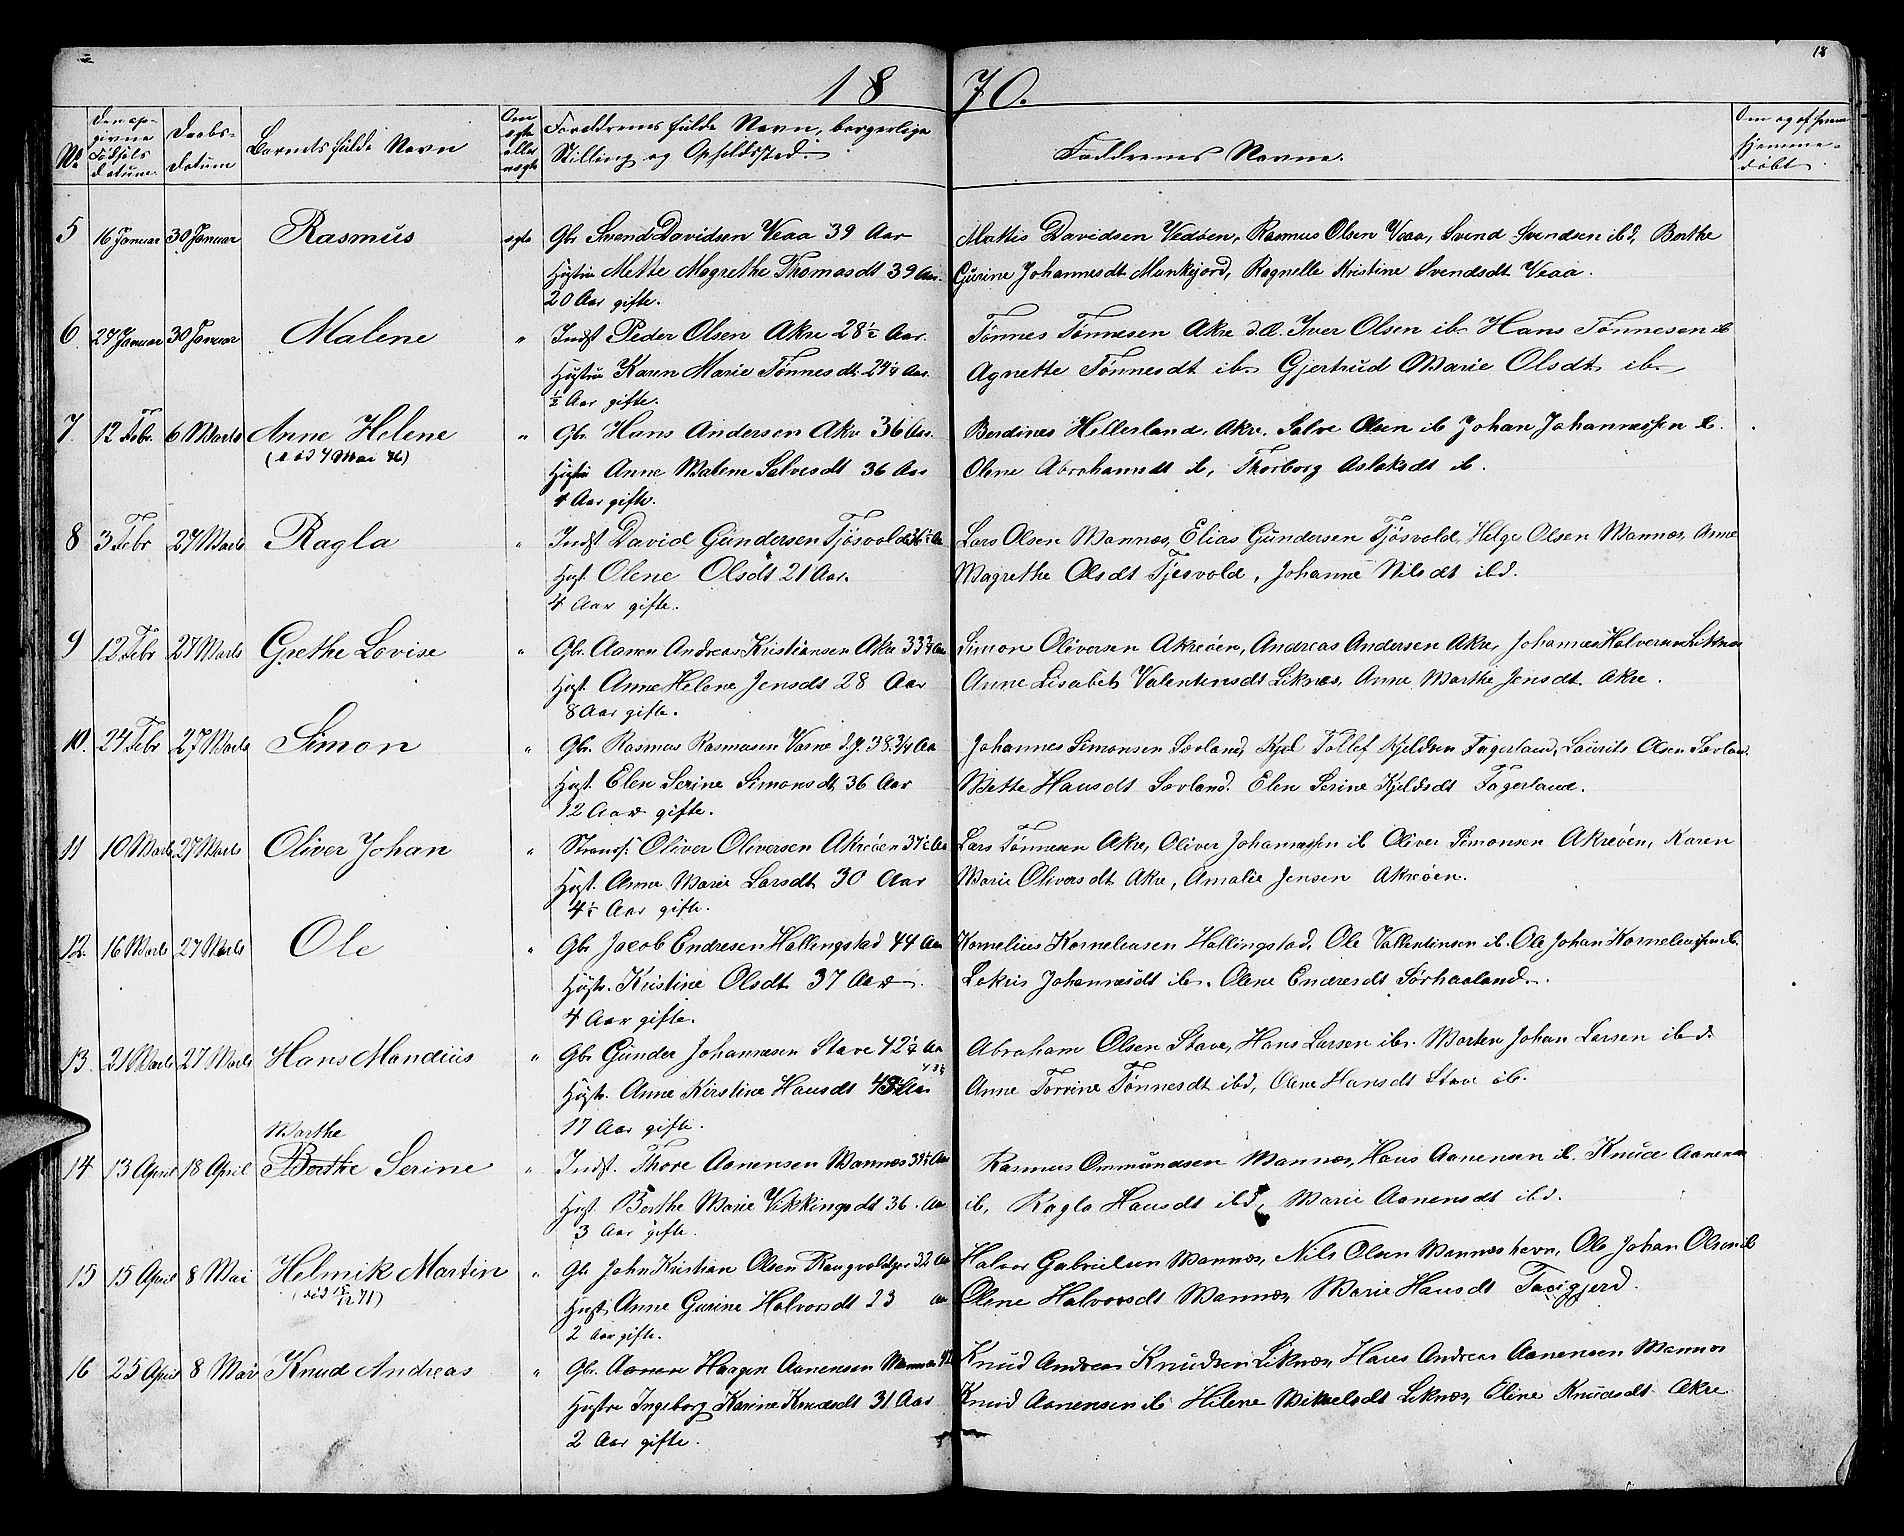 18
18 70.
No
Den op-
givne
Fødsels
datum.
Daabs-
datum
Barnets fulde Navn
Om
ægte
eller
uægte
Forældrenes fulde Navn, borgerlige
Stilling og Opholdssted.
Faddrenes Navne.
Hjemme-
døbt
5 16 Januar 30 Januar Rasmus ægte Gbr Svend Davidsen Veaa 39 Aar Mattis Davidsen Vedøen, Rasmus Olsen Veaa, Svend Svendsen ibd, Berthe
Hustru Mette Magrethe Thomasdt 39 Aar. Gurine Johannesdt Munkejord, Ragnelle Kristine Svendsdt Veaa.
20 Aar gifte.
6 27 Januar 30 Januar Malene " Indst Peder Olsen Akre 28½ Aar. Tønnes Tønnesen Akre d.Æ. Iver Olsen ib. Hans Tønnesen ib
Hustru Karen Marie Tønnesdt 24¼ Aar. Agnette Tønnesdt ib. Gjertrud Marie Olsdt ib.
½ Aar gifte.
7. 12 Febr. 6 Marts Anne Helene " Gbr. Hans Andersen Akre 36 Aar. Berdines Hellesland, Akre. Salve Olsen ib Johan Johannessen ib.
(død 4 Mai 76) Hustru Anne Malene Salvesdt 36 Aar Olene Abrahamsdt ib, Thorborg Aslaksdt ib.
4 Aar gifte.
8 3 Febr 27 Marts Ragla " Indst David Gundersen Tjøsvold Lars Olsen Mannæs, Elias Gundersen Tjøsvold, Helge Olsen Mannæs, Anne
Hust. Olene Olsdt 21 Aar. Magrethe Olsdt Tjøsvold, Johanne Nilsdt ibd.
4 Aar gifte.
9 12 Febr 27 Marts Grethe Lovise " Gbr. Aanen Andreas Kristiansen Akre 33¾ Aar Simon Oliversen Akreøen, Andreas Andersen Akre, Johannes Halversen Liknæs
Hust. Anne Helene Jensdt 28 Aar Anne Lisabet Valentinsdt Liknæs, Anne Marthe Jensdt Akre.
8 Aar gifte.
10. 24 Febr 27 Marts Simon " Gbr. Rasmus Rasmusen Varne d.y. 38¾ Aar Johannes Simonsen Sævland, Kjel Tollef Kjeldsen Fagerland, Laurits Olsen Sævland.
Hust. Elen Serine Simonsdt 36 Aar Mette Hansdt Sævland. Elen Serine Kjeldsdt Fagerland.
12 Aar gifte.
11 10 Marts 27 Marts Oliver Johan " Strands. Oliver Oliversen Akreøen 37½ Aar Lars Tønnesen Akre, Oliver Johannessen ib Oliver Simonsen Akreøen, Karen
Hust. Anne Marie Larsdt 30 Aar Marie Oliversdt Akre, Amalie Jensen Akreøen.
4½ Aar gifte.
12. 16 Marts 27 Marts Ole " Gbr Jacob Endresen Hallingstad 44 Aar Kornelius Korneliusen Hallingstad, Ole Vallentinsen ib. Ole Johan Korneliussen ib.
Hustr. Kristine Olsdt 37 Aar Lokris Johannesdt ib. Olene Endresdt Sørhaaland.
4 Aar gifte.
13. 21 Marts 27 Marts Hans Mandius " Gbr Gunder Johannesen Stave 42¼ Aar Abraham Olsen Stave, Hans Larsen ib. Morten Johan Larsen ibd.
Hustr. Anne Kirstine Hansdt 43 Aar Anne Torrine Tønnesdt ibd, Olene Hansdt Stave ib.
17 Aar gifte.
Marthe
14 13 April 18 April Berthe Serine " Indst. Thore Aanensen Mannæs Aar Rasmus Ommundsen Mannæs, Hans Aanensen ib. Knud Aanensen
Hust. Berthe Marie Vikkingsdt 36 Aar ib, Ragla Hansdt ibd, Marie Aanensdt ibd.
3 Aar gifte.
15 15 April 8 Mai Helmik Martin " Gbr John Kristian Olsen Rangvoldgjer 32 Aar Halvor Gabrielsen Mannæs, Nils Olsen Mannæshavn, Ole Johan Olsen ib
Hust. Anne Gurine Halvorsdt 23 Aar Olene Halvorsdt Mannæs Marie Hansdt
2 Aar gifte.
16 25 April 8 Mai Knud Andreas " Gbr. Aanen Haagen Aanensen Mannæs Knud Andreas Knudsen Liknæs, Hans Andreas Aanensen Mannæs
Hustru Ingeborg Karine Knudsdt 31 Aar Knud Aanensen ib Helene Mikkelsdt Liknæs, Eline Knudsdt Akre
2 Aar gifte.